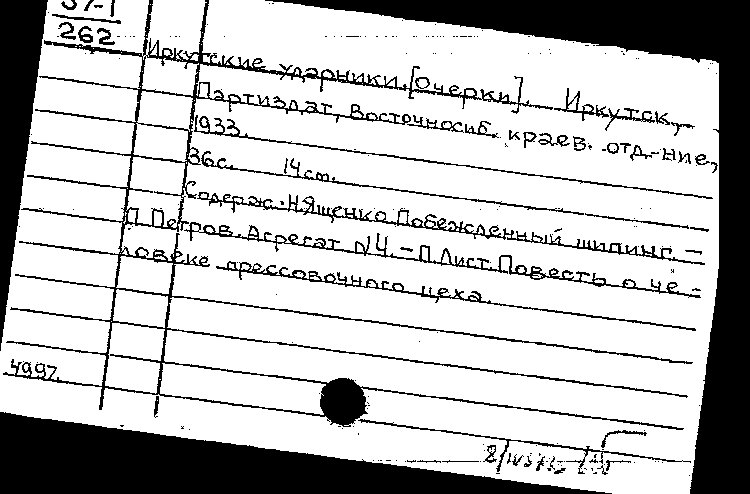 37-1
262
Иркутские ударники. [Очерки]. Иркутск,
Партиздат, Восточносиб. краев. отд-ние,
1933.
36с. 14 см.
Содерж.: Н. Ященко. Побежденный шипинг. –
П. Петров. Агрегат №4. – П. Лист. Повесть о че-
ловеке прессовочного цеха.
4997.